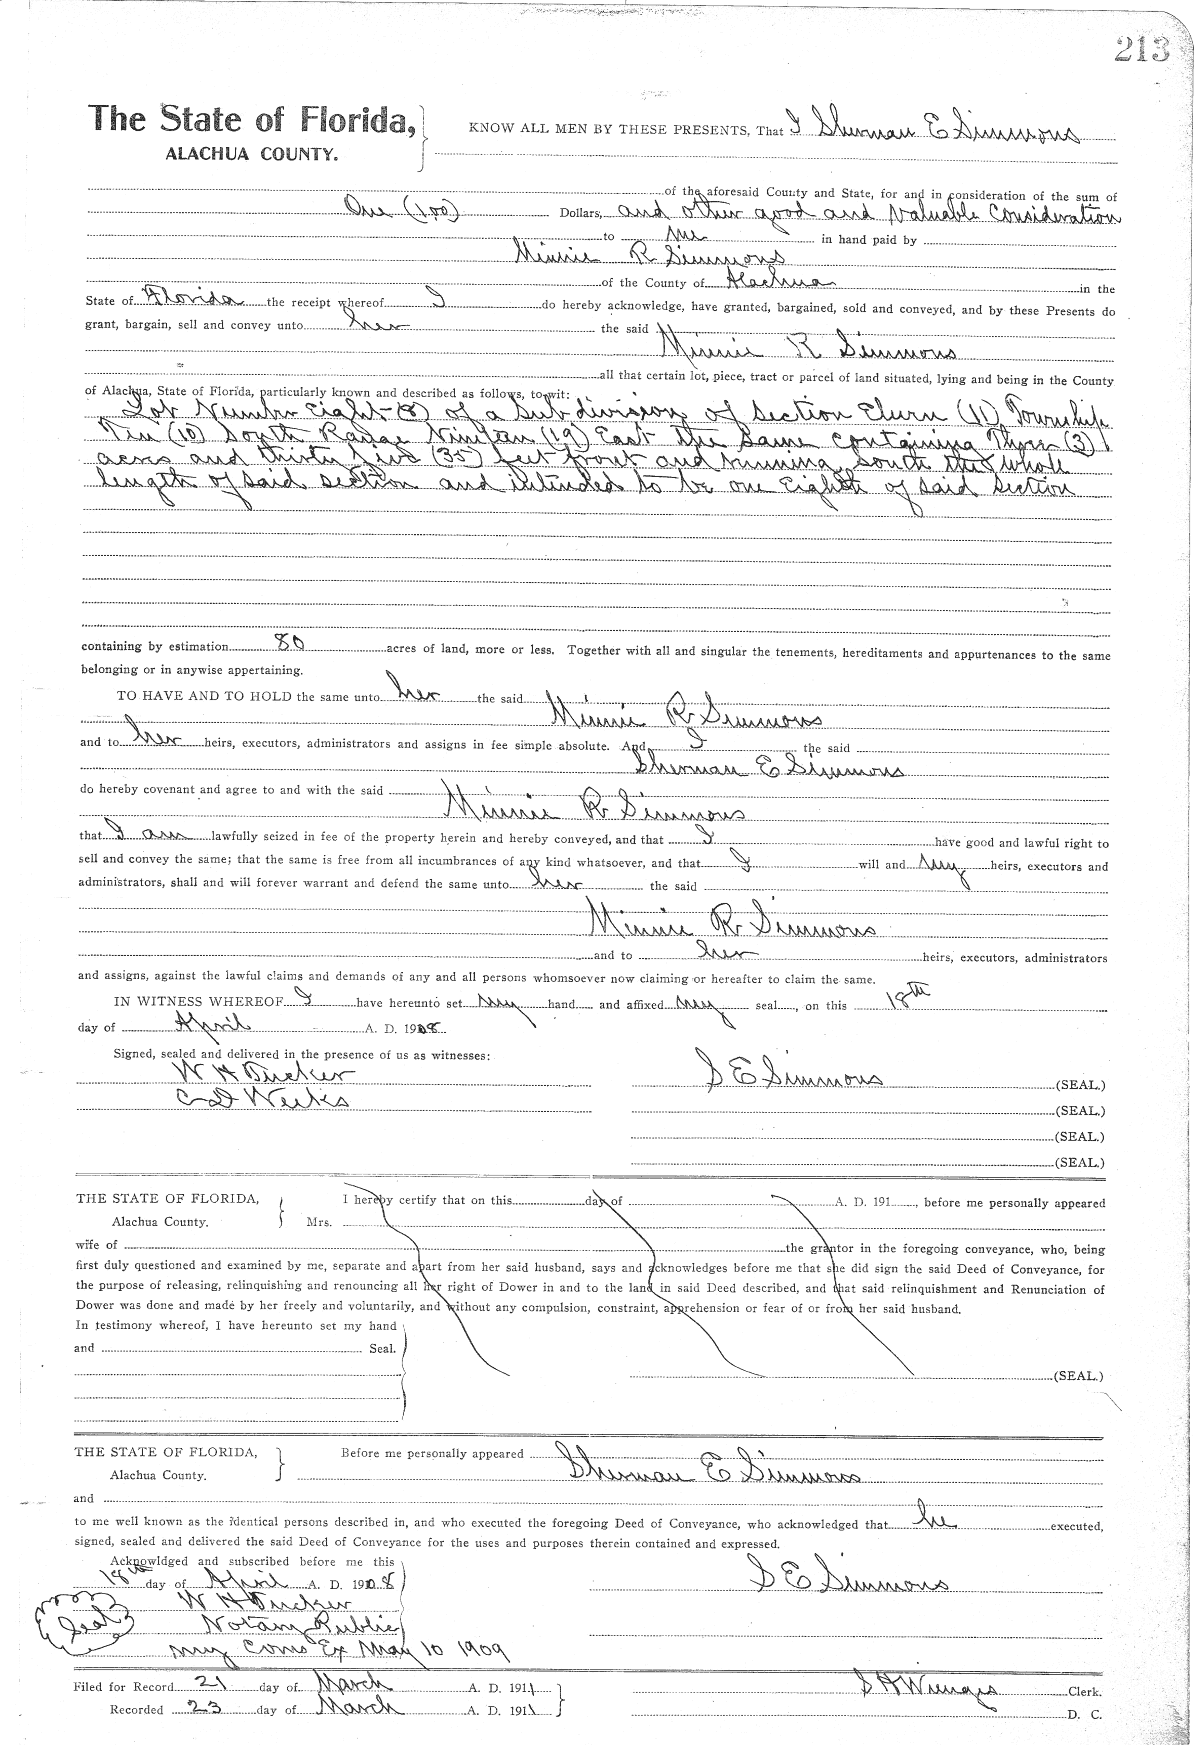 213
The State of Florida, KNOW ALL MEN BY THESE PRESENTS, That I Sherman E Simmons
ALACHUA COUNTY.
of the aforesaid County and State, for and in consideration of the sum of
One (1.00) Dollars, and other good and Valuable Consideration
to me in hand paid by
Minnie R Simmons
of the County of Alachua in the
State of Florida the receipt whereof I do hereby acknowledge, have granted, bargained, sold and conveyed, and by these Presents do
grant, bargain, sell and convey unto her the said
Minnie R Simmons
all that certain lot, piece, tract or parcel of land situated, lying and being in the County
of Alachua, State of Florida, particularly known and described as follows, to wit:
Lot Number Eight (8) of a Subdivision of Section Eleven (11) Township
Ten (10) South Range Nineteen (19) East the Same containing Three (3)
acres and thirty five (35) feet front and running South the whole
length of said section and intended to be one Eighth of said section
containing by estimation 80 acres of land, more or less. Together with all and singular the tenements, hereditaments and appurtenances to the same
belonging or in anywise appertaining.
TO HAVE AND TO HOLD the same unto her the said
Minnie R Simmons
and to her heirs, executors, administrators and assigns in fee simple absolute. And I the said
Sherman E Simmons
do hereby covenant and agree to and with the said
Minnie R Simmons
that I am lawfully seized in fee of the property herein and hereby conveyed, and that I have good and lawful right to
sell and convey the same; that the same is free from all incumbrances of any kind whatsoever, and that I will and my heirs, executors and
administrators, shall and will forever warrant and defend the same unto her the said
Minnie R Simmons
and to her heirs, executors, administrators
and assigns, against the lawful claims and demands of any and all persons whomsoever now claiming or hereafter to claim the same.
IN WITNESS WHEREOF I have hereunto set my hand and affixed my seal, on this 18th
day of April A. D. 1908
Signed, sealed and delivered in the presence of us as witnesses:
W H Tucker S E Simmons (SEAL.)
C D Weeks (SEAL.)
(SEAL.)
(SEAL.)
THE STATE OF FLORIDA, I hereby certify that on this day of A. D. 191 , before me personally appeared
Alachua County. Mrs.
wife of the grantor in the foregoing conveyance, who, being
first duly questioned and examined by me, separate and apart from her said husband, says and acknowledges before me that she did sign the said Deed of Conveyance, for
the purpose of releasing, relinquishing and renouncing all her right of Dower in and to the land in said Deed described, and that said relinquishment and Renunciation of
Dower was done and made by her freely and voluntarily, and without any compulsion, constraint, apprehension or fear of or from her said husband.
In testimony whereof, I have hereunto set my hand
and Seal.
(SEAL.)
THE STATE OF FLORIDA, Before me personally appeared Sherman E Simmons
Alachua County.
and
to me well known as the identical persons described in, and who executed the foregoing Deed of Conveyance, who acknowledged that he executed,
signed, sealed and delivered the said Deed of Conveyance for the uses and purposes therein contained and expressed.
Acknowldged and subscribed before me this
18th day of April A. D. 1908 S E Simmons
W H Tucker
Seal Notary Public
my Coms Ex May 10 1909
Filed for Record 21 day of March A. D. 1911 S H Wienges Clerk.
Recorded 23 day of March A. D. 1911 D. C.